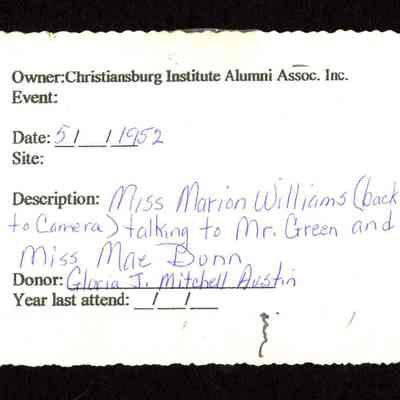 Owner:Christiansburg Institute Alumni Assoc. Inc.
Event:
Date: 5/ / 1952
Site:
Description: Miss Marion Williams (back
to Camera) talking to Mr. Green and
Miss Mae Dunn
Donor: Gloria J. Mitchell Austin
Year last attend: _/_/_